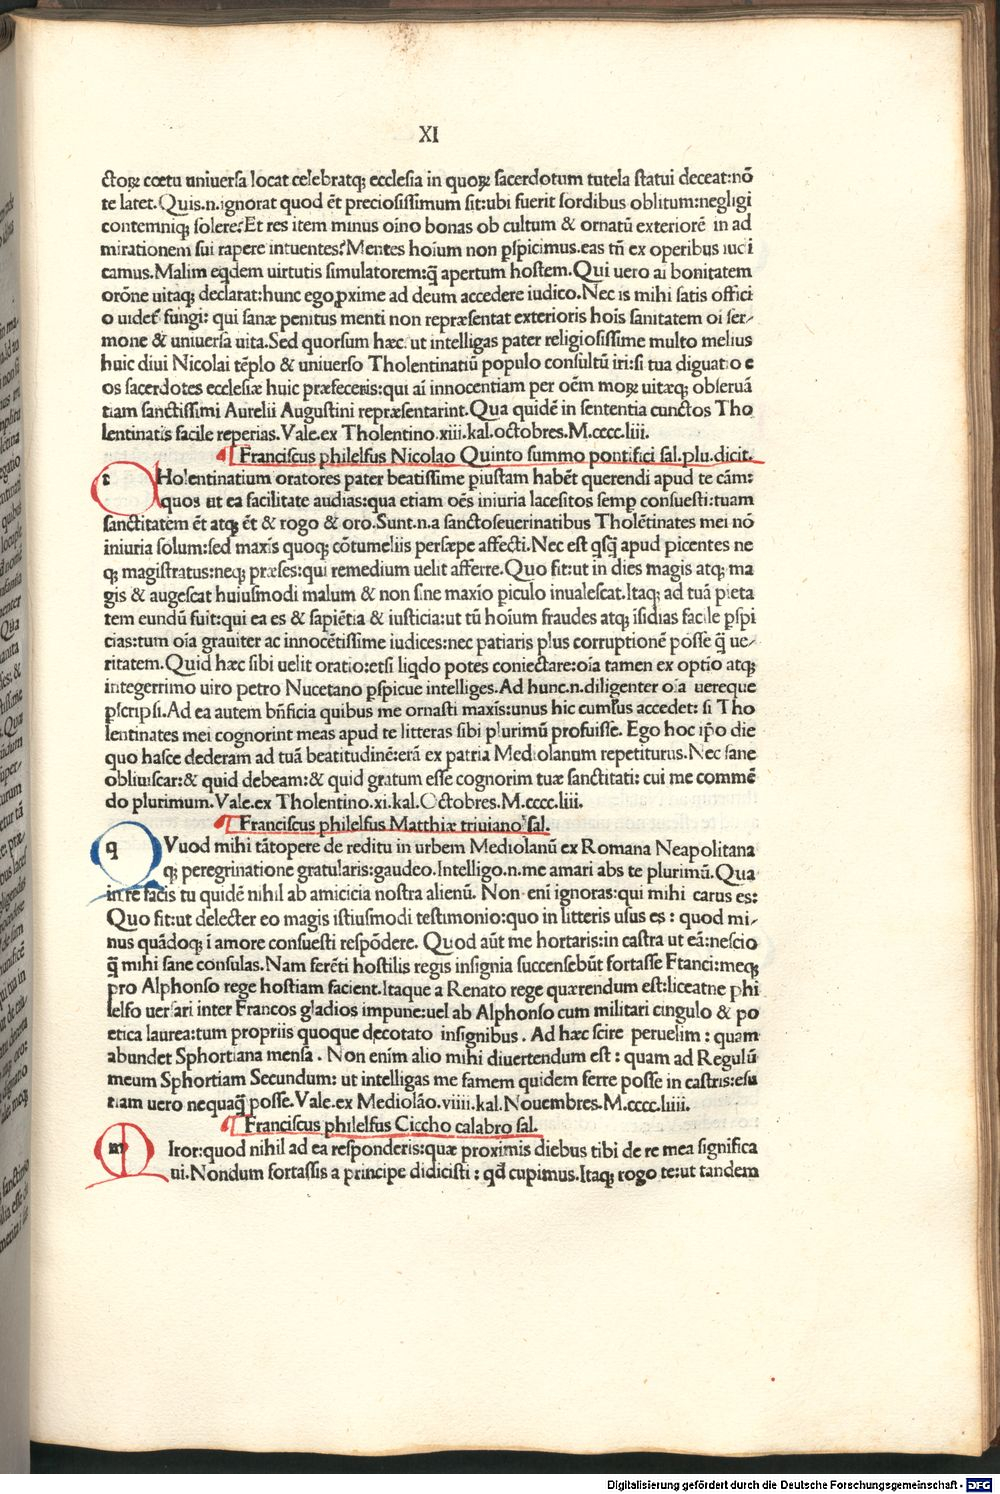 XI
ctoꝝ cœtu uniuersa locat celebratqꝫ ecclesia in quoꝝ sacerdotum tutela statui deceat:nō
te latet.Quis.n.ignorat quod ēt preciosissimum sit:ubi fuerit sordibus oblitum:negligi
contemniqꝫ solere?Et res item minus oīno bonas ob cultum & ornatū exteriorē in ad
mirationem sui rapere intuentes?Mentes hoīum non pspicimus.eas tn̄ ex operibus iudi
camus.Malim eqdem uirtutis simulatorem:q̄ apertum hostem.Qui uero aī bonitatem
orōne uitaqꝫ declarat:hunc ego ꝓxime ad deum accedere iudico.Nec is mihi satis offici
o uidet' fungi: qui sanæ penitus menti non repræsentat exterioris hois sanitatem oī ser-
mone & uniuersa uita.Sed quorsum hæc. ut intelligas pater religiosissime multo melius
huic diui Nicolai tēplo & uniuerso Tholentinatiū populo consultū iri:si tua dignatio e
os sacerdotes ecclesiæ huic præfeceris:qui aī innocentiam per oēm moꝝ uitæqꝫ obseruā
tiam sanctissimi Aurelii Augustini repræsentarint.Qua quidē in sententia cunctos Tho
lentinatis facile reperias.Vale.ex Tholentino.xiii.kal.octobres.M.cccc.liii.
Franciscus philelfus Nicolao Quinto summo pontifici sal.plu.dicit.
t Holentinatium oratores pater beatissime piustam habēt querendi apud te cām:
quos ut ea facilitate audias:qua etiam oēs iniuria lacesitos semp consuesti:tuam
sanctitatem ēt atqꝫ ēt & rogo & oro.Sunt.n.a sanctoseuerinatibus Tholētinates mei nō
iniuria solum:sed maxīs quoqꝫ cōtumeliis persæpe affecti.Nec est qsq̄ apud picentes ne
qꝫ magistratus:neqꝫ præses:qui remedium uelit afferre.Quo fit:ut in dies magis atqꝫ ma
gis & augescat huiusmodi malum & non sine maxīo piculo inualescat.Itaqꝫ ad tuā pieta
tem eundū fuit:qui ea es & sapiētia & iusticia:ut tū hoīum fraudes atqꝫ īsidias facile pspi
cias:tum oīa grauiter ac innocētissime iudices:nec patiaris plus corruptionē posse q̄ ue-
ritatem.Quid hæc sibi uelit oratio:etsi liqdo potes coniectare:oīa tamen ex optīo atqꝫ
integerrimo uiro petro Nucetano pspicue intelliges.Ad hunc.n.diligenter oīa uereque
pscripsi.Ad ea autem bn̄ficia quibus me ornasti maxīs:unus hic cumlus accedet: si Tho
lentinates mei cognorint meas apud te litteras sibi plurimū profuisse. Ego hoc ip̄o die
quo hasce dederam ad tuā beatitudinē:erā ex patria Mediolanum repetiturus.Nec sane
obliuiscar:& quid debeam:& quid gratum esse cognorim tuæ sanctitati: cui me commē
do plurimum.Vale.ex Tholentino.xi.kal.Octobres.M.cccc.liii.
Franciscus philelfus Matthiæ triuiano sal.
q Vuod mihi tātopere de reditu in urbem Mediolanū ex Romana Neapolitana
qꝫ peregrinatione gratularis:gaudeo.Intelligo.n.me amari abs te plurimū.Qua
in re facis tu quidē nihil ab amicicia nostra alienū. Non enī ignoras:qui mihi carus es:
Quo fit:ut delecter eo magis istiusmodi testimonio:quo in litteris usus es : quod mi-
nus quādoqꝫ ī amore consuesti respōdere. Quod aūt me hortaris:in castra ut eā:nescio
q̄ mihi sane consulas.Nam ferēti hostilis regis insignia succensebūt fortasse Franci:meqꝫ
pro Alphonso rege hostiam facient.Itaque a Renato rege quærendum est:liceatne phi
lelfo uersari inter Francos gladios impune:uel ab Alphonso cum militari cingulo & po
etica laurea:tum propriis quoque decotato insignibus . Ad hæc scire peruelim : quam
abundet Sphortiana mensa . Non enim alio mihi diuertendum est : quam ad Regulū
meum Sphortiam Secundum: ut intelligas me famem quidem ferre posse in castris:esu
riam uero nequaq̄ posse.Vale.ex Mediolāo.viiii.kal.Nouembres.M.cccc.liiii.
Franciscus philelfus Ciccho calabro sal.
m Iror:quod nihil ad ea responderis:quæ proximis diebus tibi de re mea significa
ui.Nondum fortassis a principe didicisti : qd cupimus.Itaqꝫ rogo te:ut tandem
Digitalisierung gefördert durch die Deutsche Forschungsgemeinschaft - DFG